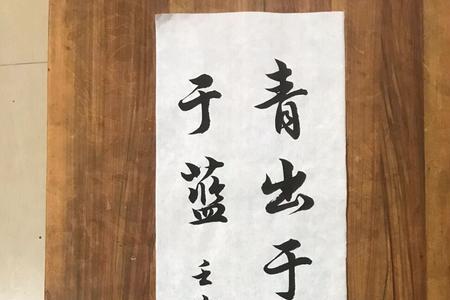 青出于
于藍
壬